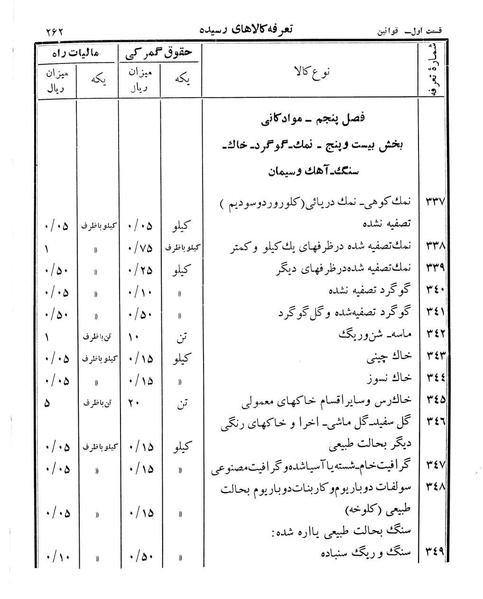 قسمت اول ـ قوانین تعرفه کالاهای رسیده ۲۶۲
شمارۀ تعرفه نوع کالا حقوق گمرکی مالیات راه
یکه میزان ریال یکه میزان ریال
فصل پنجم ـ موادکانی
بخش بیست و پنج ـ نمك ـ گوگرد ـ خاك ـ
سنگ ـ آهك وسیمان
۳۳۷ نمك کوهی ـ نمك دریائی (کلورور دوسودیم )
تصفیه نشده کیلو ۰/۰۵ کیلو باظرف ۰/۰۵
۳۳۸ نمك تصفیه شده درظرفهای یك کیلو و کمتر کیلو باظرف ۰/۷۵ » ۱
۳۳۹ نمك تصفیه شده درظرفهای دیگر کیلو ۰/۲۵ » ۰/۵۰
۳۴۰ گوگرد تصفیه نشده » ۰/۱۰ » ۰/۰۵
۳۴۱ گوگرد تصفیه شده و گل گوگرد » ۰/۵۰ » ۰/۵۰
۳۴۲ ماسه ـ شن وریگ تن ۱۰ تن باظرف ۱
۳۴۳ خاك چینی کیلو ۰/۱۵ کیلو باظرف ۰/۰۵
۳۴۴ خاك نسوز » ۰/۱۵ » ۰/۰۵
۳۴۵ خاك رس و سایر اقسام خاکهای معمولی تن ۲۰ تن باظرف ۵
۳۴۶ گل سفید ـ گل ماشی ـ اخرا و خاکهای رنگی
دیگر بحالت طبیعی کیلو ۰/۱۵ کیلو باظرف ۰/۰۵
۳۴۷ گرافیت خام ـ شسته یا آسیا شده و گرافیت مصنوعی » ۰/۱۵ » ۰/۰۵
۳۴۸ سولفات دوباریوم و کاربنات دوباریوم بحالت
طبیعی (کلوخه) » ۰/۱۵ » ۰/۰۵
سنگ بحالت طبیعی یا اره شده:
۳۴۹ سنگ و ریگ سنباده » ۰/۵۰ » ۰/۱۰